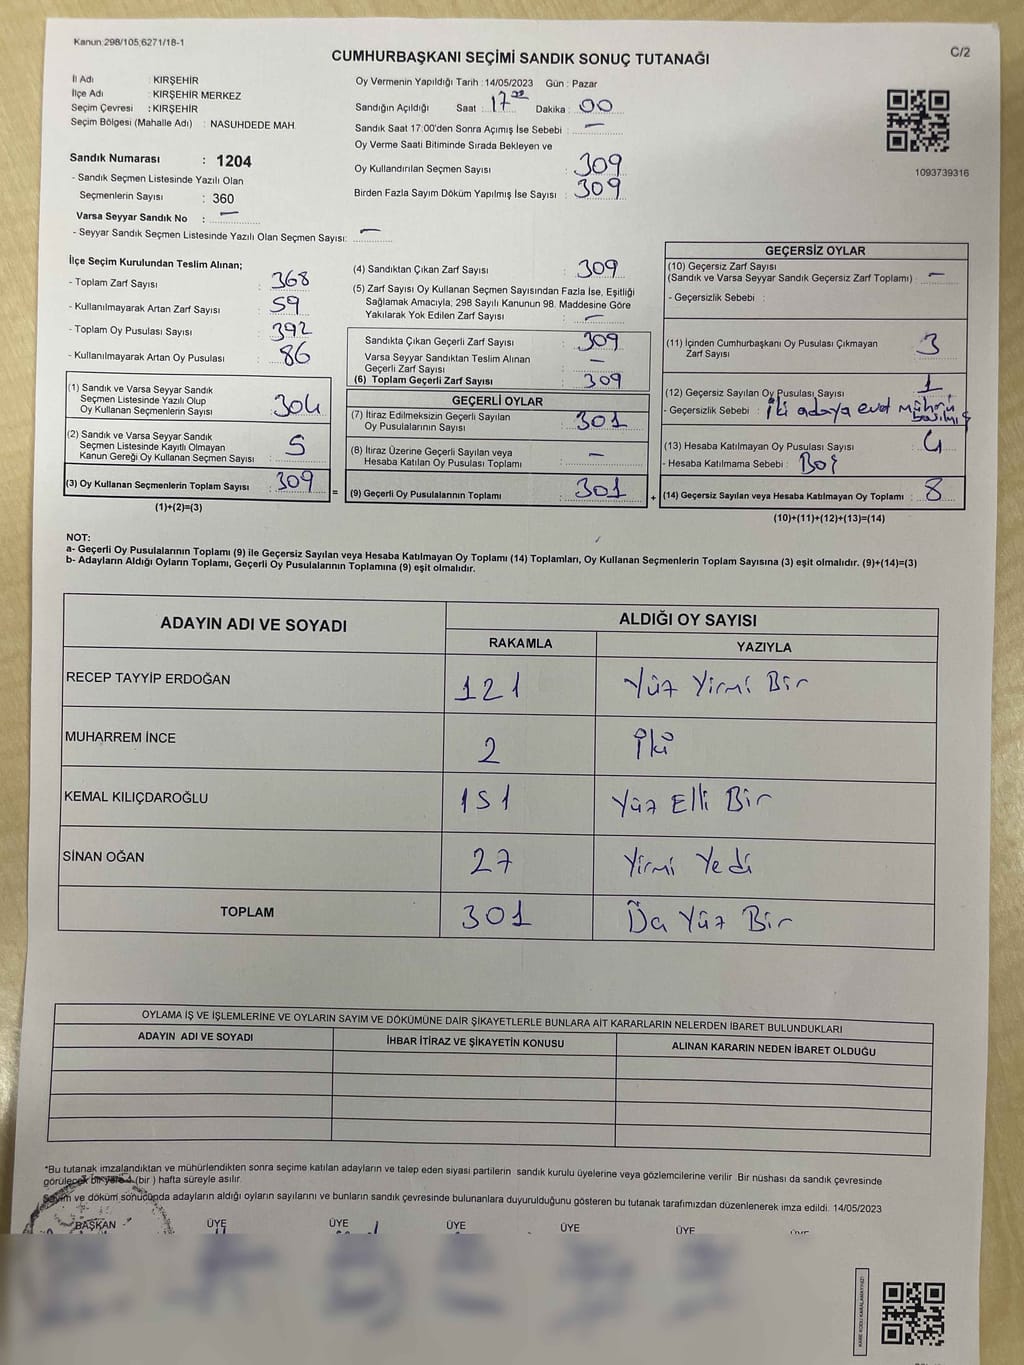 Kanun 298/105,6271/18-1
C/2
CUMHURBAŞKANI SEÇİMİ SANDIK SONUÇ TUTANAĞI
İl Adı : KIRŞEHİR
İlçe Adı : KIRŞEHİR MERKEZ
Seçim Çevresi : KIRŞEHİR
Seçim Bölgesi (Mahalle Adı) : NASUHDEDE MAH.
Sandık Numarası : 1204
- Sandık Seçmen Listesinde Yazılı Olan
Seçmenlerin Sayısı : 360
Varsa Seyyar Sandık No : —
- Seyyar Sandık Seçmen Listesinde Yazılı Olan Seçmen Sayısı: —
Oy Vermenin Yapıldığı Tarih : 14/05/2023 Gün : Pazar
Sandığın Açıldığı Saat : 17 00 Dakika : 00
Sandık Saat 17:00'den Sonra Açımış İse Sebebi : —
Oy Verme Saati Bitiminde Sırada Bekleyen ve
Oy Kullandırılan Seçmen Sayısı : 309
Birden Fazla Sayım Döküm Yapılmış İse Sayısı : 309
1093739316
İlçe Seçim Kurulundan Teslim Alınan;
- Toplam Zarf Sayısı : 368
- Kullanılmayarak Artan Zarf Sayısı : 59
- Toplam Oy Pusulası Sayısı : 392
- Kullanılmayarak Artan Oy Pusulası : 86
(1) Sandık ve Varsa Seyyar Sandık
Seçmen Listesinde Yazılı Olup
Oy Kullanan Seçmenlerin Sayısı : 304
(2) Sandık ve Varsa Seyyar Sandık
Seçmen Listesinde Kayıtlı Olmayan
Kanun Gereği Oy Kullanan Seçmen Sayısı : 5
(3) Oy Kullanan Seçmenlerin Toplam Sayısı : 309
(1)+(2)=(3)
(4) Sandıktan Çıkan Zarf Sayısı : 309
(5) Zarf Sayısı Oy Kullanan Seçmen Sayısından Fazla İse, Eşitliği
Sağlamak Amacıyla; 298 Sayılı Kanunun 98. Maddesine Göre
Yakılarak Yok Edilen Zarf Sayısı : —
Sandıkta Çıkan Geçerli Zarf Sayısı : 309
Varsa Seyyar Sandıktan Teslim Alınan
Geçerli Zarf Sayısı : —
(6) Toplam Geçerli Zarf Sayısı : 309
GEÇERLİ OYLAR
(7) İtiraz Edilmeksizin Geçerli Sayılan
Oy Pusulalarının Sayısı : 301
(8) İtiraz Üzerine Geçerli Sayılan veya
Hesaba Katılan Oy Pusulası Toplamı : —
= (9) Geçerli Oy Pusulalarının Toplamı : 301 +
GEÇERSİZ OYLAR
(10) Geçersiz Zarf Sayısı
(Sandık ve Varsa Seyyar Sandık Geçersiz Zarf Toplamı) : —
- Geçersizlik Sebebi :
(11) İçinden Cumhurbaşkanı Oy Pusulası Çıkmayan
Zarf Sayısı : 3
(12) Geçersiz Sayılan Oy Pusulası Sayısı : 1
- Geçersizlik Sebebi : iki adaya evet mührü
basılmış
(13) Hesaba Katılmayan Oy Pusulası Sayısı : 4
- Hesaba Katılmama Sebebi : Boş
(14) Geçersiz Sayılan veya Hesaba Katılmayan Oy Toplamı : 8
(10)+(11)+(12)+(13)=(14)
NOT:
a- Geçerli Oy Pusulalarının Toplamı (9) ile Geçersiz Sayılan veya Hesaba Katılmayan Oy Toplamı (14) Toplamları, Oy Kullanan Seçmenlerin Toplam Sayısına (3) eşit olmalıdır. (9)+(14)=(3)
b- Adayların Aldığı Oyların Toplamı, Geçerli Oy Pusulalarının Toplamına (9) eşit olmalıdır.
ADAYIN ADI VE SOYADI
ALDIĞI OY SAYISI
RAKAMLA YAZIYLA
RECEP TAYYİP ERDOĞAN 121 Yüz Yirmi Bir
MUHARREM İNCE 2 İki
KEMAL KILIÇDAROĞLU 151 Yüz Elli Bir
SİNAN OĞAN 27 Yirmi Yedi
TOPLAM 301 Yüz Bir
OYLAMA İŞ VE İŞLEMLERİNE VE OYLARIN SAYIM VE DÖKÜMÜNE DAİR ŞİKAYETLERLE BUNLARA AİT KARARLARIN NELERDEN İBARET BULUNDUKLARI
ADAYIN ADI VE SOYADI İHBAR İTİRAZ VE ŞİKAYETİN KONUSU ALINAN KARARIN NEDEN İBARET OLDUĞU
*Bu tutanak imzalandıktan ve mühürlendikten sonra seçime katılan adayların ve talep eden siyasi partilerin sandık kurulu üyelerine veya gözlemcilerine verilir. Bir nüshası da sandık çevresinde
görülecek bir yere 1 (bir ) hafta süreyle asılır.
Sayım ve döküm sonucunda adayların aldığı oyların sayılarını ve bunların sandık çevresinde bulunanlara duyurulduğunu gösteren bu tutanak tarafımızdan düzenlenerek imza edildi. 14/05/2023
BAŞKAN ÜYE ÜYE ÜYE ÜYE ÜYE ÜYE
KARE KODU KARALAMAYINIZ!